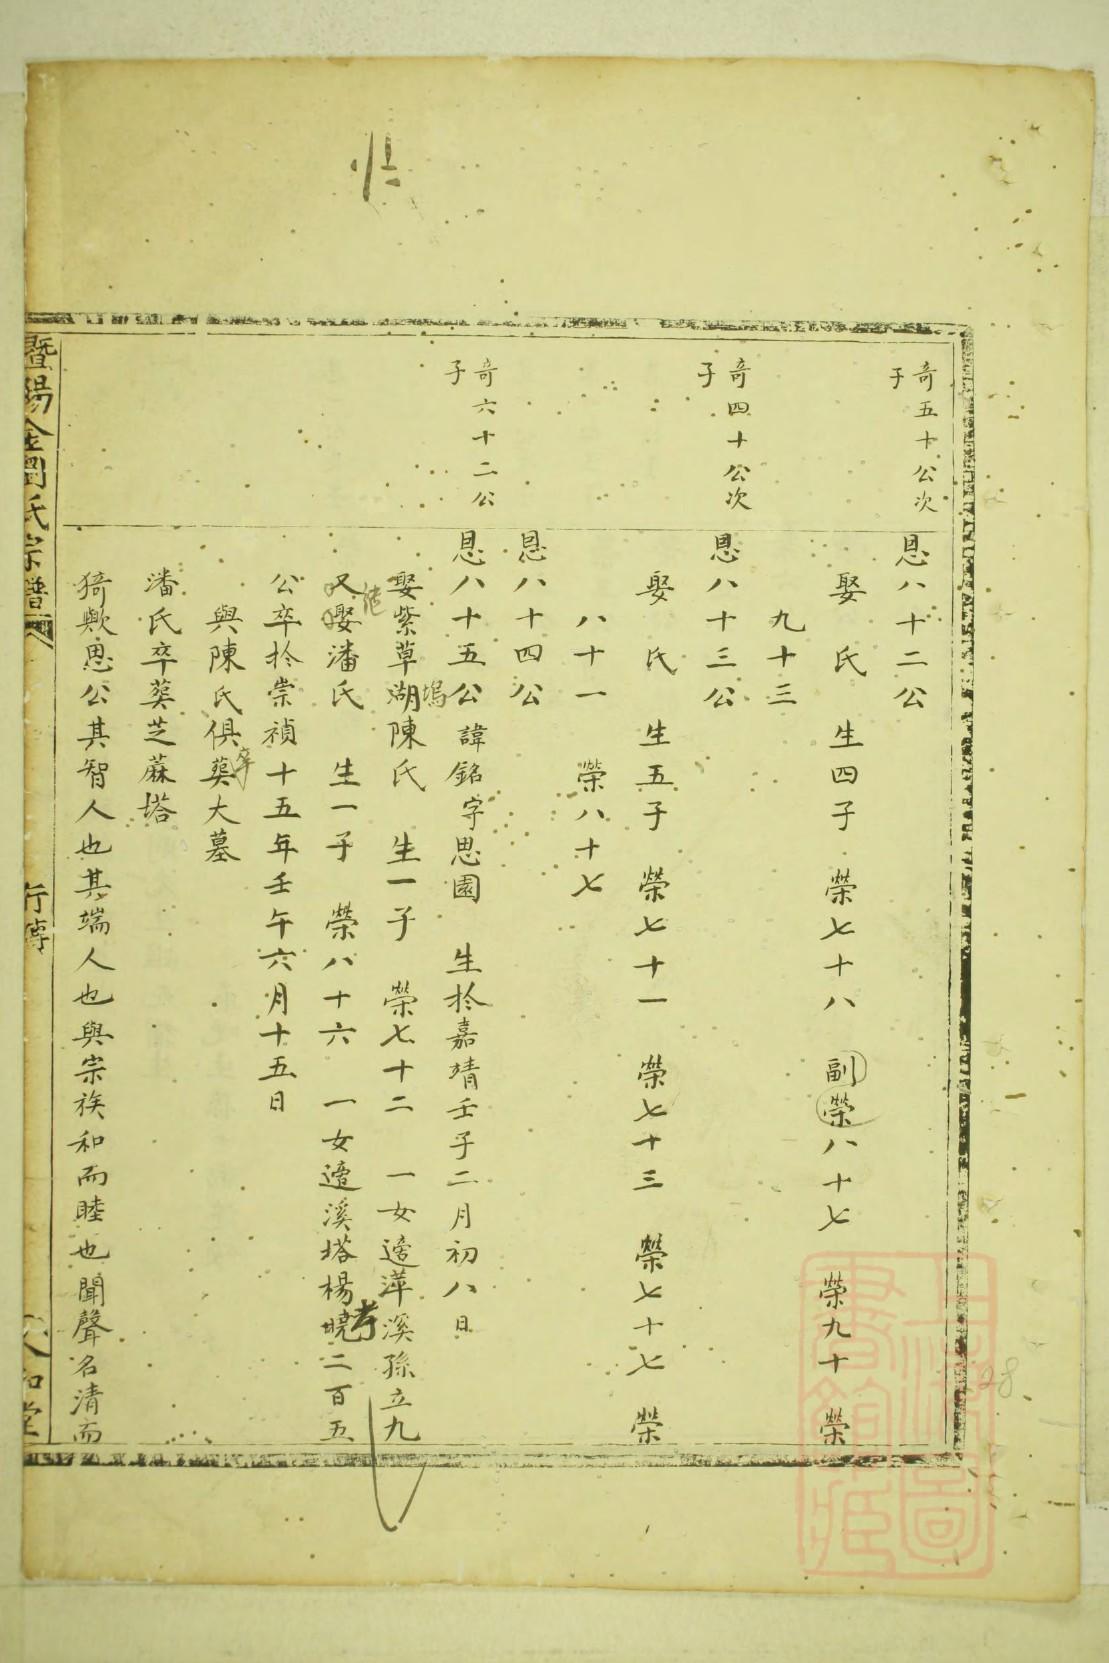 奇五十公次
子
恩八十二公
娶　氏　生四子　榮七十八　副榮八十七　榮九十　榮
九十三
奇四十公次
子
恩八十三公
娶　氏　生五子　榮七十一　榮七十三　榮七十七　榮
八十一　榮八十七
恩八十四公
奇六十二公
子
恩八十五公諱銘字思園　生於嘉靖壬子二月初八日
娶紫草湖塢陳氏　生一子　榮七十二　一女適萍溪孫立九
又娶潘氏　生一子　榮八十六　一女適溪塔楊曉二百五
考
公卒於崇禎十五年壬午六月十五日
與陳氏俱葬大墓
卒
潘氏卒葬芝蔴塔
猗歟思公其智人也其端人也與宗族和而睦也聞聲名清而
暨陽金澗氏宗譜
行傳
上海圖書館藏
28